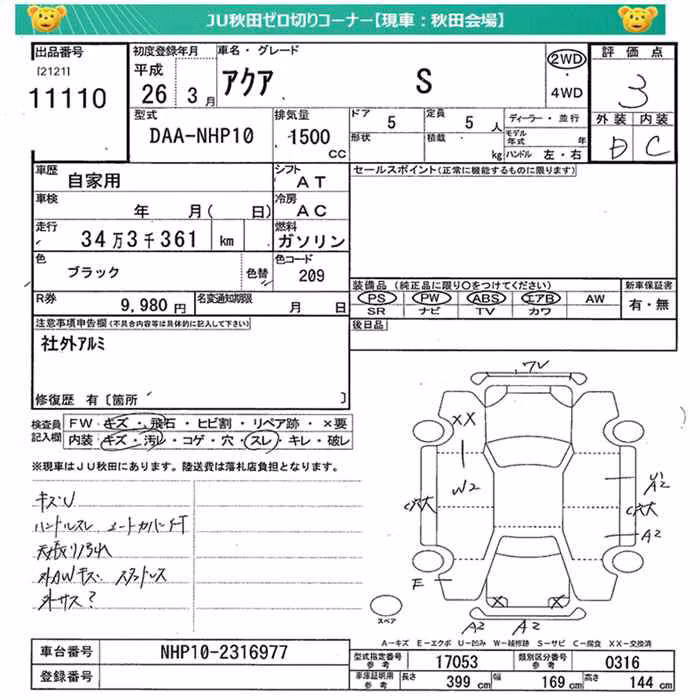 JU秋田ゼロ切りコーナー【現車：秋田会場】
出品番号 初度登録年月 車名・グレード 評価点
[2121] 平成 アクア S 2WD ・ 4WD 3
11110 26 3月
型式 排気量 ドア 5 定員 5人 ディーラー・並行 外装 内装
DAA-NHP10 1500 CC 形状 積載 kg モデル年式 年 D C
ハンドル 左・右
車歴 自家用 シフト AT セールスポイント(正常に機能するものに限ります)
車検 年 月( 日) 冷房 AC
走行 34万3千361 km 燃料 ガソリン
色 ブラック 色替 色コード 209
装備品 (純正品に限り○をつけてください) 新車保証書
R券 9,980円 名変通知期限 月 日 PS PW ABS エアB AW 有・無
SR ナビ TV カワ
注意事項申告欄(不具合内容等は具体的に記入して下さい) 後日品
社外アルミ
修復歴 有〔箇所 〕
検査員記入欄 FW・キズ・飛石・ヒビ割・リペア跡・×要
内装・キズ・汚レ・コゲ・穴・スレ・キレ・破レ
※現車はJU秋田にあります。陸送費は落札店負担となります。
キズU
ハンドルスレ シートカバー
天張り汚れ
外AWキズ スタットレス
外サス？
XX
W2
A2
A2
E
A2 A2
X X
スペア
A-キズ E-エクボ U-凹み W-補修跡 S-サビ C-腐食 XX-交換済
車台番号 NHP10-2316977 型式指定番号参考 17053 類別区分番号参考 0316
登録番号 車庫証明用参考 長さ 399 cm 幅 169 cm 高さ 144 cm